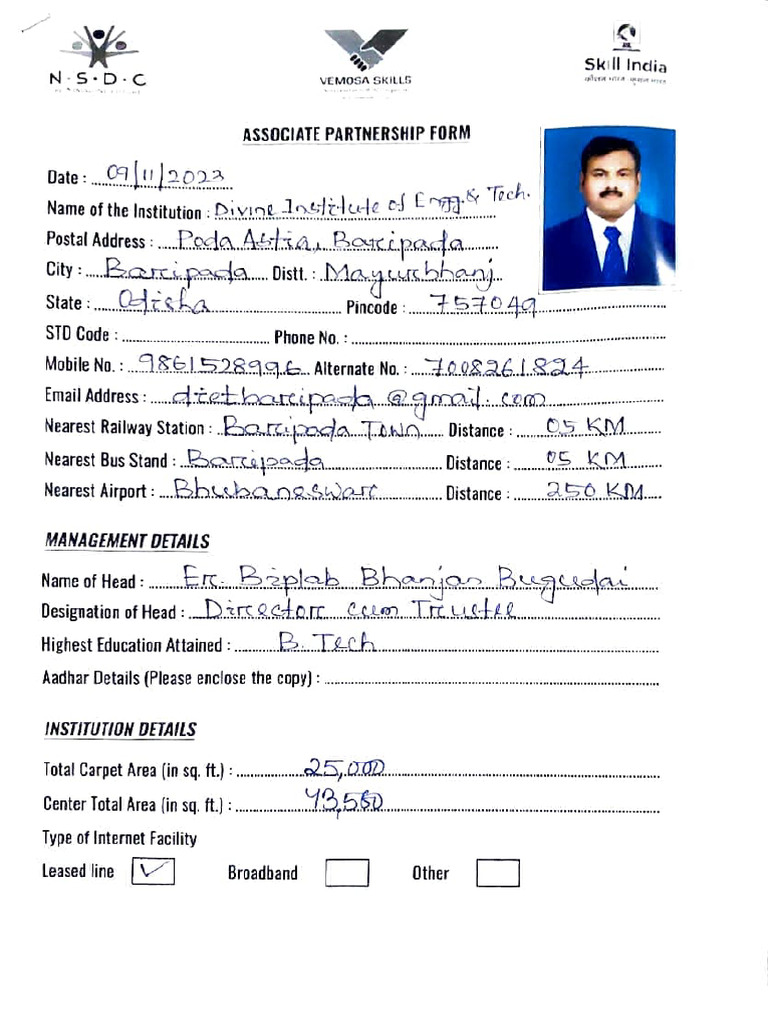 N·S·D·C
VEMOSA SKILLS
Skill India
कौशल भारत - कुशल भारत
ASSOCIATE PARTNERSHIP FORM
Date : 09/11/2023
Name of the Institution : Divine Institute of Engg. & Tech.
Postal Address : Poda Astia, Baripada
City : Baripada Distt. : Mayurbhanj
State : Odisha Pincode : 757049
STD Code : Phone No. :
Mobile No. : 9861528996 Alternate No. : 7008261824
Email Address : dietbaripada@gmail.com
Nearest Railway Station : Baripada Town Distance : 05 KM
Nearest Bus Stand : Baripada Distance : 05 KM
Nearest Airport : Bhubaneswar Distance : 250 KM
MANAGEMENT DETAILS
Name of Head : Er. Biplab Bhanjan Bugudai
Designation of Head : Director cum Trustee
Highest Education Attained : B. Tech
Aadhar Details (Please enclose the copy) :
INSTITUTION DETAILS
Total Carpet Area (in sq. ft.) : 25,000
Center Total Area (in sq. ft.) : 43,560
Type of Internet Facility
Leased line ✓ Broadband Other